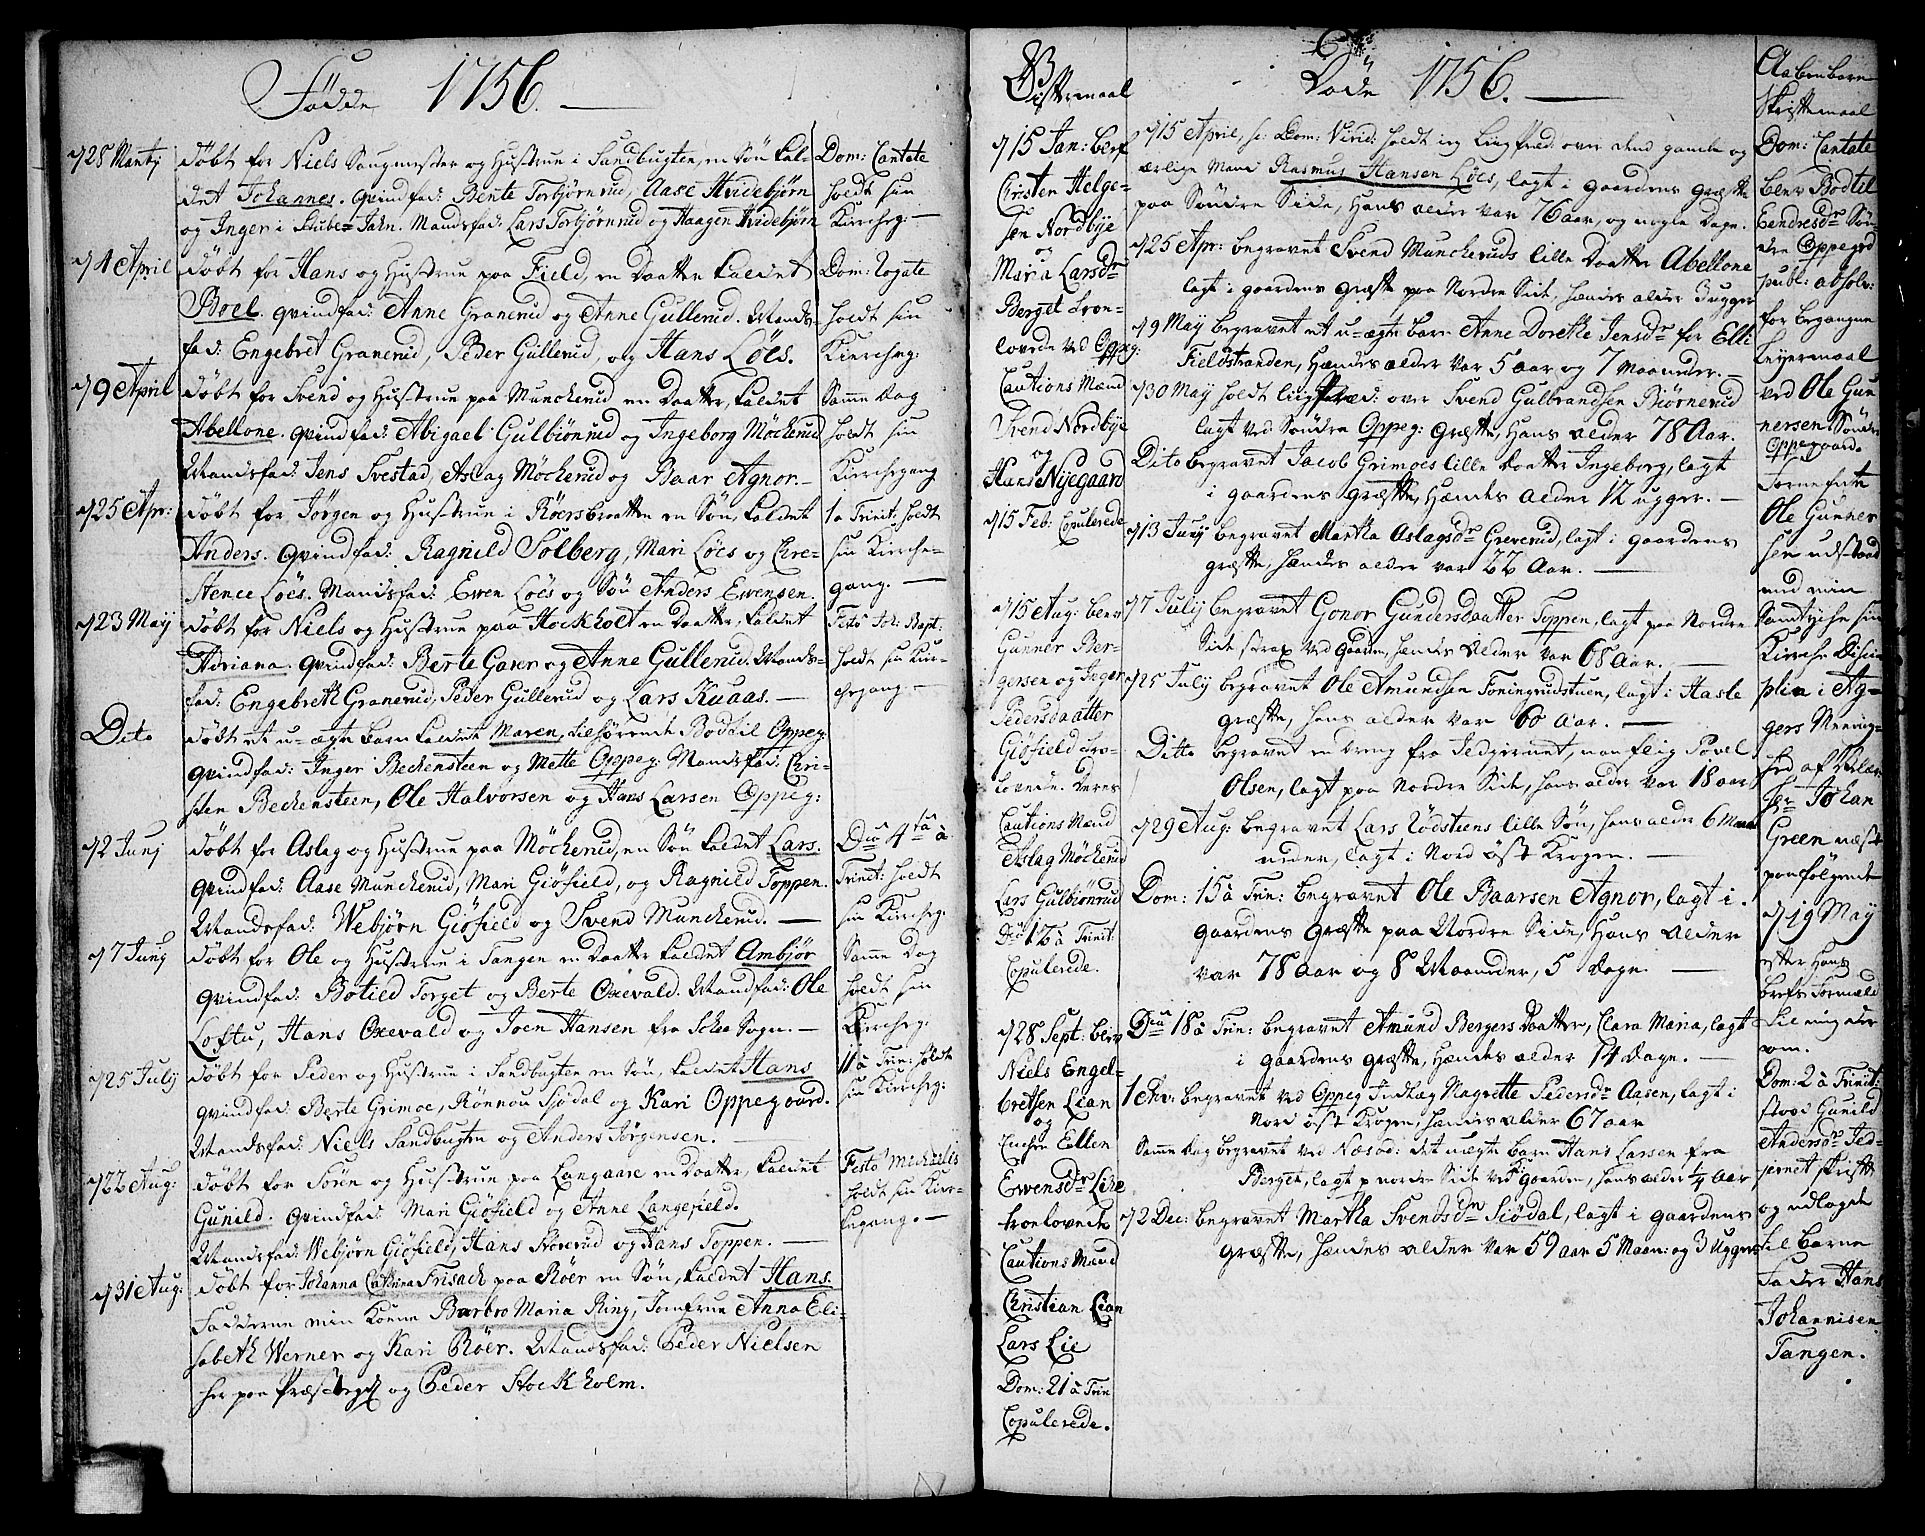 Fødde 1756.
d 28 Martij
døbt for Niels Saugmester og Hustrue i Sandbugten, en Søn kal-
det Johannes. qvindfad: Bente Torbjørnrud, Aase Hvidebjørn
og Inger i Stube=Jahn. Mandsfad: Lars Torbjørnrud og Haagen Hvidebjørn
Dom: Cantate
holdt sin
Kircheg:
d 4 April
døbt for Hans og Hustrue paa Field, en Daatter kaldet
Boel. qvindfad: Anne Granerud og Anne Gullerud. Mands-
fad: Engebret Granerud, Peder Gullerud, og Hans Löes.
Dom: Rogate
holdt sin
Kircheg:
d 9 April
døbt for Svend og Hustrue paa Munckerud en Daatter, kaldet
Abellone. qvindfad: Abigael Gulbiönrud og Ingeborg Möckerud
Mandsfad: Jens Svestad, Aslag Möckerud og Baar Agnor.
Samme dag
holdt sin
Kirchegang
d 25 Apr:
døbt for Jörgen og Hustrue i Röersbraatten en Søn, kaldet
Anders. qvindfad: Ragnild Solberg, Mari Löes og Chre-
stence Löes. Mandsfad: Ewen Löes og Søn Anders Ewensen.
1 a Trinit: holdt
sin Kirche-
gang.
d 23 May
døbt for Niels og Hustrue paa Stockholt en Daatter, kaldet
Adriana. qvindfad: Berte Gaser og Anne Gullerud. Mands-
fad: Engebreth Granerud, Peder Gullerud og Lars Kuaas.
Festo Joh: Bapt.
holdt sin Kir-
chegang
Dito
døbt et u-ægte barn kaldet Maren, tilhørende Bodtil Oppeg:
qvindfad: Inger Beckensteen og Mette Oppeg. Mandsfad: Chri-
sten Beckensteen, Ole Halvorsen og Hans Larsen Oppeg:
d 2 Junij
døbt for Aslag og Hustrue paa Möckerud, en Søn kaldet Lars.
qvindfad: Aase Munckerud, Mari Giöfield, og Ragnild Toppen.
Mandsfad: Webjørn Giöfield og Svend Munckerud.
Dca 4ta à
Trinit: holdt
sin Kircheg:
d 7 Junij
døbt for Ole og Hustrue i Tangen en Daatter kaldet Ambjör
qvindfad: Botild Torget og Berte Oxevald. Mandfad: Ole
Loftu, Hans Oxevald og Joen Hansen fra Schee Sogn.
Samme Dag
holdt sin
Kircheg:
d 25 July
døbt for Peder og Hustrue i Sandbugten en Søn, kaldet Hans
qvindfad: Berte Grimoe, Rönnou Siödal og Kari Oppegaard.
Mandsfad: Niels Sandbugten og Anders Jörgensen.
11 à Trin: holdt
sin Kircheg:
d 22 Aug:
døbt for Sören og Hustrue paa Langaare en Daatter, kaldet
Gunild. qvindfad: Mari Giöfield og Anne Langefield.
Mandsfad: Webjørn Giöfield, Hans Svererud og Hans Toppen.
Festo Michaelis
holdt sin Kir-
kegang.
d 31 Aug:
døbt for Johanna Cathrina Frisack paa Röer en Søn, kaldet Hans.
Fadderne min Koene Barbro Maria Ring, Jomfrue Anna Eli-
sabeth Werner og Kari Röer. Mandsfad: Peder Nielsen
her paa Præstegd og Peder Stockholm.
Wistemaal
d 15 Jan: bef
Christen Helge-
sen Nordbye
og
Maria Larsdr
Berget Troe-
lovede ved Oppeg:
Cautions Mænd
Svend Nordbye
og
Hans Nyegaard
d 15 Feb: Copulerede
d 15 Aug: blev
Gunner Ber-
gersen og Inger
Pedersdaatter
Giöfield Tro-
lovede. Deres
Cautions Mænd
Aslag Möckerud
Lars Gulbiönrud
Dca 12 à Trinit:
Copulerede.
d 28 Sept: blev
Niels Engel-
bretsen Lian
og
Enchen Ellen
Ewensdr Lire
troelovede
Cautions Mænd
Christian Lian
Lars Lie
Dom: 21 à Trin
Copulerede.
Døde 1756.
d 15 April, sc: Dom: Virid: holdt ieg Liigpræd: over dend gamle og
ærlige Mand Rasmus Hansen Löes, lagt i Gaardens Græfte
paa Søndre Side, Hans alder var 76 aar, og nogle Dage.
d 25 Apr: begravet Svend Munckeruds lille Daatter Abellone
lagt i gaardens græfte paa Nordre Side, hændes alder 3 ugger
d 9 May begravet et u-ægte barn Anne Dorethe Jensdr for Elli
Fieldstranden, Hændes alder var 5 aar og 7 Maaneder.
d 30 May holdt liigpræd: over Svend Gulbrandsen Biörnerud
lagt ved Søndre Oppeg: græfte, Hans alder 78 Aar.
Dito begravet Jacob Grimoes lille Daatter Ingeborg, lagt
i gaardens græfte, Hændes alder 12 ugger.
d 13 Junij begravet Martha Aslagsdr Greverud, lagt i gaardens
græfte, hændes alder var 22 Aar.
d 7 Julij begravet Gonor Gundersdaatter Toppen, lagt paa Nordre
Side strax ved Gaarden, hændes alder var 68 Aar.
d 25 July begravet Ole Amundsen Foningrudstuen, lagt i Hasle
græfte, hans alder var 60 aar.
Ditto begravet en Dreng fra Jedgiernet, navnlig Povel
Olsen, lagt paa Nordre Side, hans alder var 18 aar
d 29 Aug: begravet Lars Rödsteens lille Søn, hans alder 6 Maa-
neder, lagt i Nord öst Krogen.
Dom: 15 à Trin: begravet Ole Baarsen Agnor, lagt i
gaardens græfte paa Nordre Side, Hans alder
var 78 aar og 8 Maaneder, 5 dage.
Dca 18 à Trin: begravet Amund Bergers Daatter, Clara Maria, lagt
i gaardens græfte, Hændes alder 14 Dage.
begravet ved Oppeg Indlæg Magrette Pedersdr Aasen, lagt i
Nord öst Krogen, hændes alder 67 aar
Samme dag begravet ved Næsod: det uægte barn Hans Larsen fra
Berget, lagt p nordre Side ved Gaarden, hans alder 1/4 Aar
d 2 Dec: begravet Martha Svendsdr Siödal, lagt i gaardens
græfte, hændes alder var 59 aar 5 Maan: og 3 Ugger
Aabenbare
Skriftemaal
Dom: Cantate
blev Bodtil
Eendresdr Søn-
dre Oppegrd
publ: absolv:
for begangne
Leyermaal
ved Ole Gun
nersen Søndre
Oppegaard.
Ole Gunner
sen udstaad
med min
Samtyche sin
Kirche Disci-
plin i Ag-
gers Meenig-
hed af
hr Johan
Green næst
paafølgende
d 19 May
efter Hans
brefs formeld
til mig der
om.
Dom: 2 à Trinit:
stod Gunild
Andersdr Jed-
jernet Skrifte
og udlagde
til barne
Fader Hans
Johannisen
Tangen.